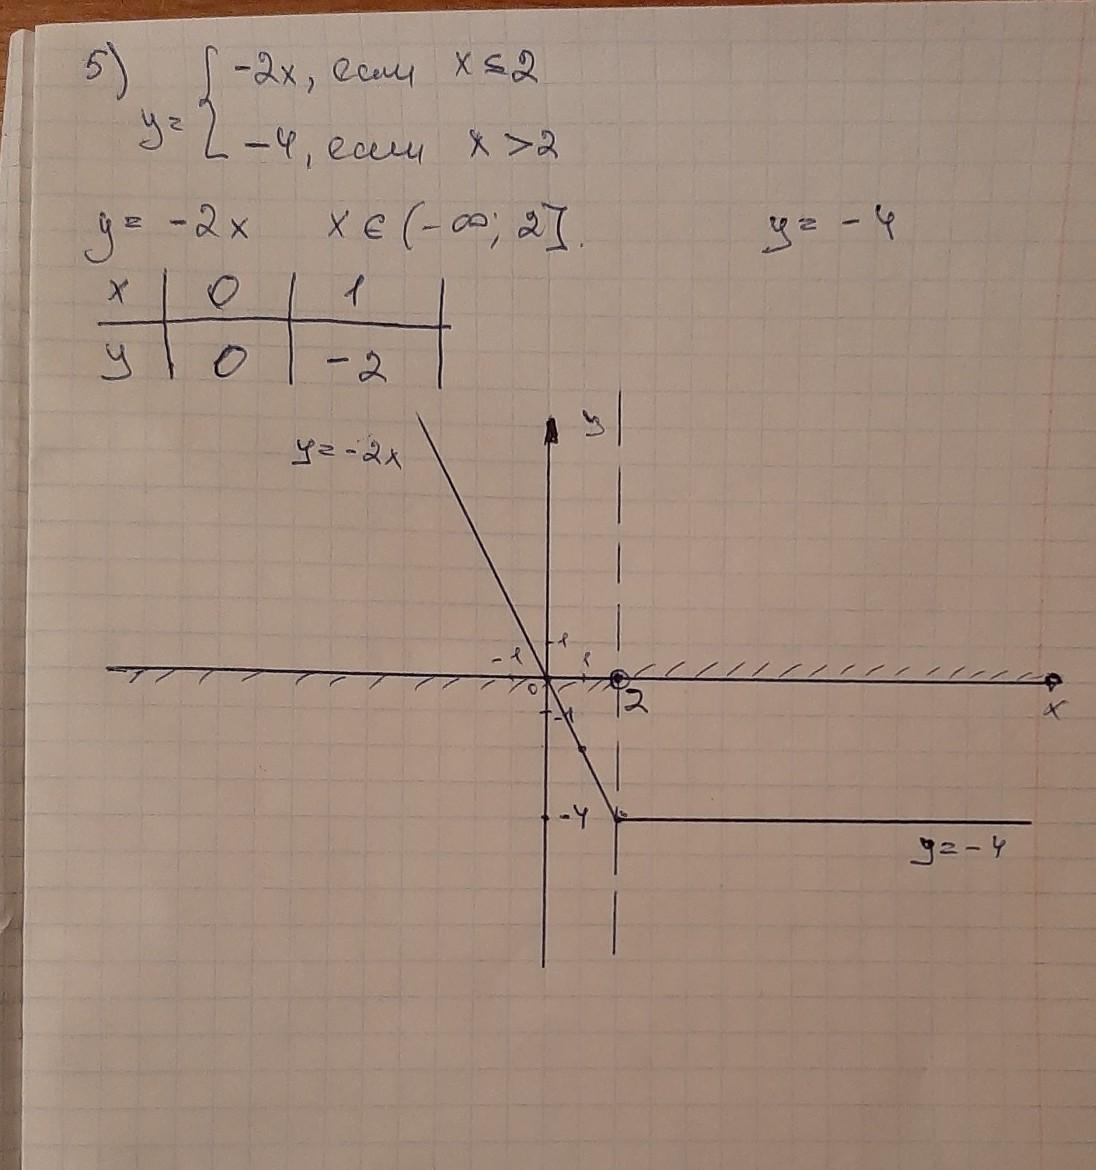 5) y = { -2x, если x ≤ 2
-4, если x > 2
y = -2x x ∈ (-∞; 2]. y = -4
x | 0 | 1 |
y | 0 | -2 |
y
y = -2x
1
-1 1
0 2 x
-1
-4
y = -4